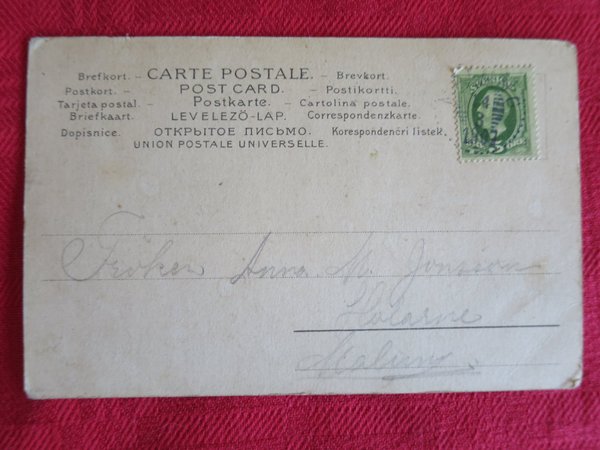 Brefkort. – CARTE POSTALE. – Brevkort.
Postkort. – POST CARD. – Postikortti.
Tarjeta postal. – Postkarte. – Cartolina postale.
Briefkaart. LEVELEZÖ-LAP. Correspondenzkarte.
Dopisnice. ОТКРЫТОЕ ПИСЬМО. Korespondenčrí listek.
UNION POSTALE UNIVERSELLE.
SVERIGE
5
Fröken Anna M. Jonsson